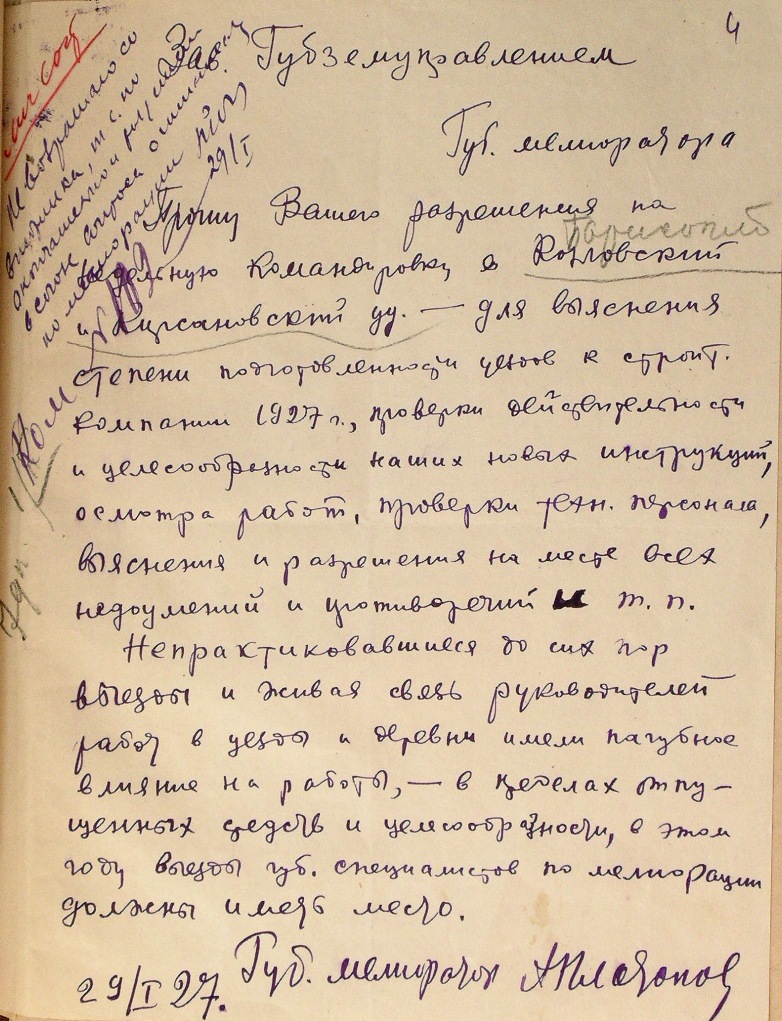 4
Зав. Губземуправлением
Губ. мелиоратора
Прошу Вашего разрешения на
недельную командировку в Козловский
Борисогл
и Кирсановский уу. — для выяснения
степени подготовленности уездов к строит.
компании 1927 г., проверки действительности
и целесообразности наших новых инструкций,
осмотра работ, проверки техн. персонала,
выяснения и разрешения на месте всех
недоумений и противоречий и т. п.
Непрактиковавшиеся до сих пор
выезды и живая связь руководителей
работ в уезды и деревни имели пагубное
влияние на работы, — в пределах отпу-
щенных средств и целесообразности, в этом
году выезды губ. специалистов по мелиорации
должны иметь место.
29/I 27. Губ. мелиоратор АПлатонов
Не возражаю со
29/I